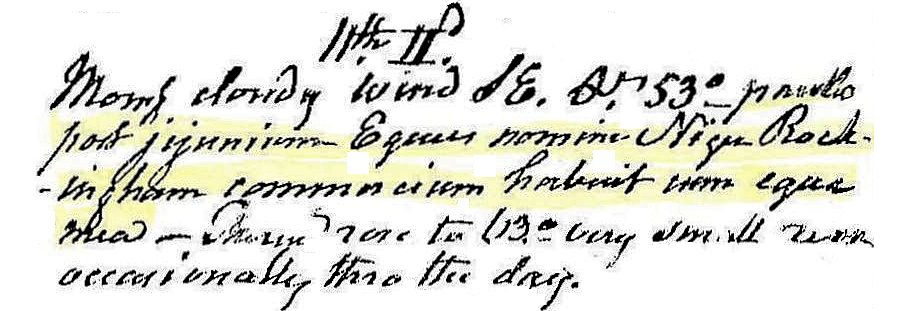 11th II^d.
Morng cloudy wind SE. 53° paulo
post jejunium Equus nomine Niger Rock-
-ingham commercium habuit cum equa
mea — Therm^r rose to 63° very small rain
occasionally thro the day.